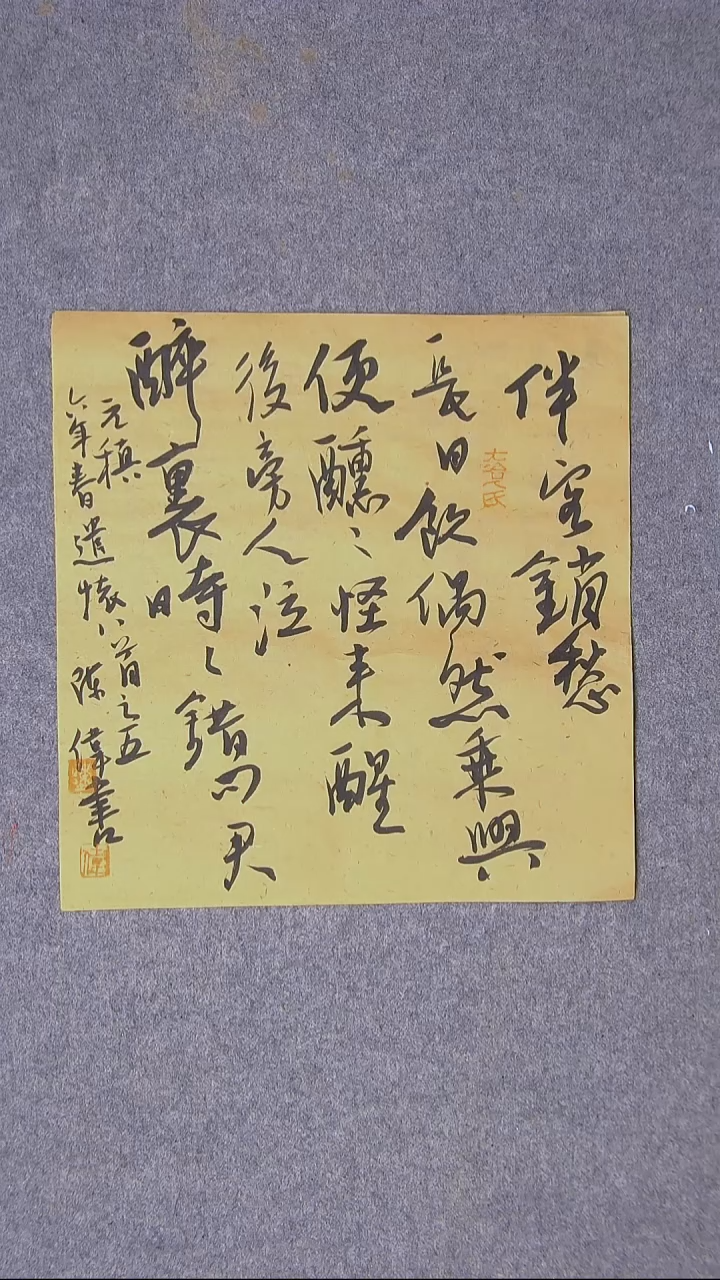 伴客銷愁
長日飲偶然乘興
便醺〻怪来醒
後旁人泣
醉裏時〻錯问君
元稹
六年春遣懷八首之五
陳偉書